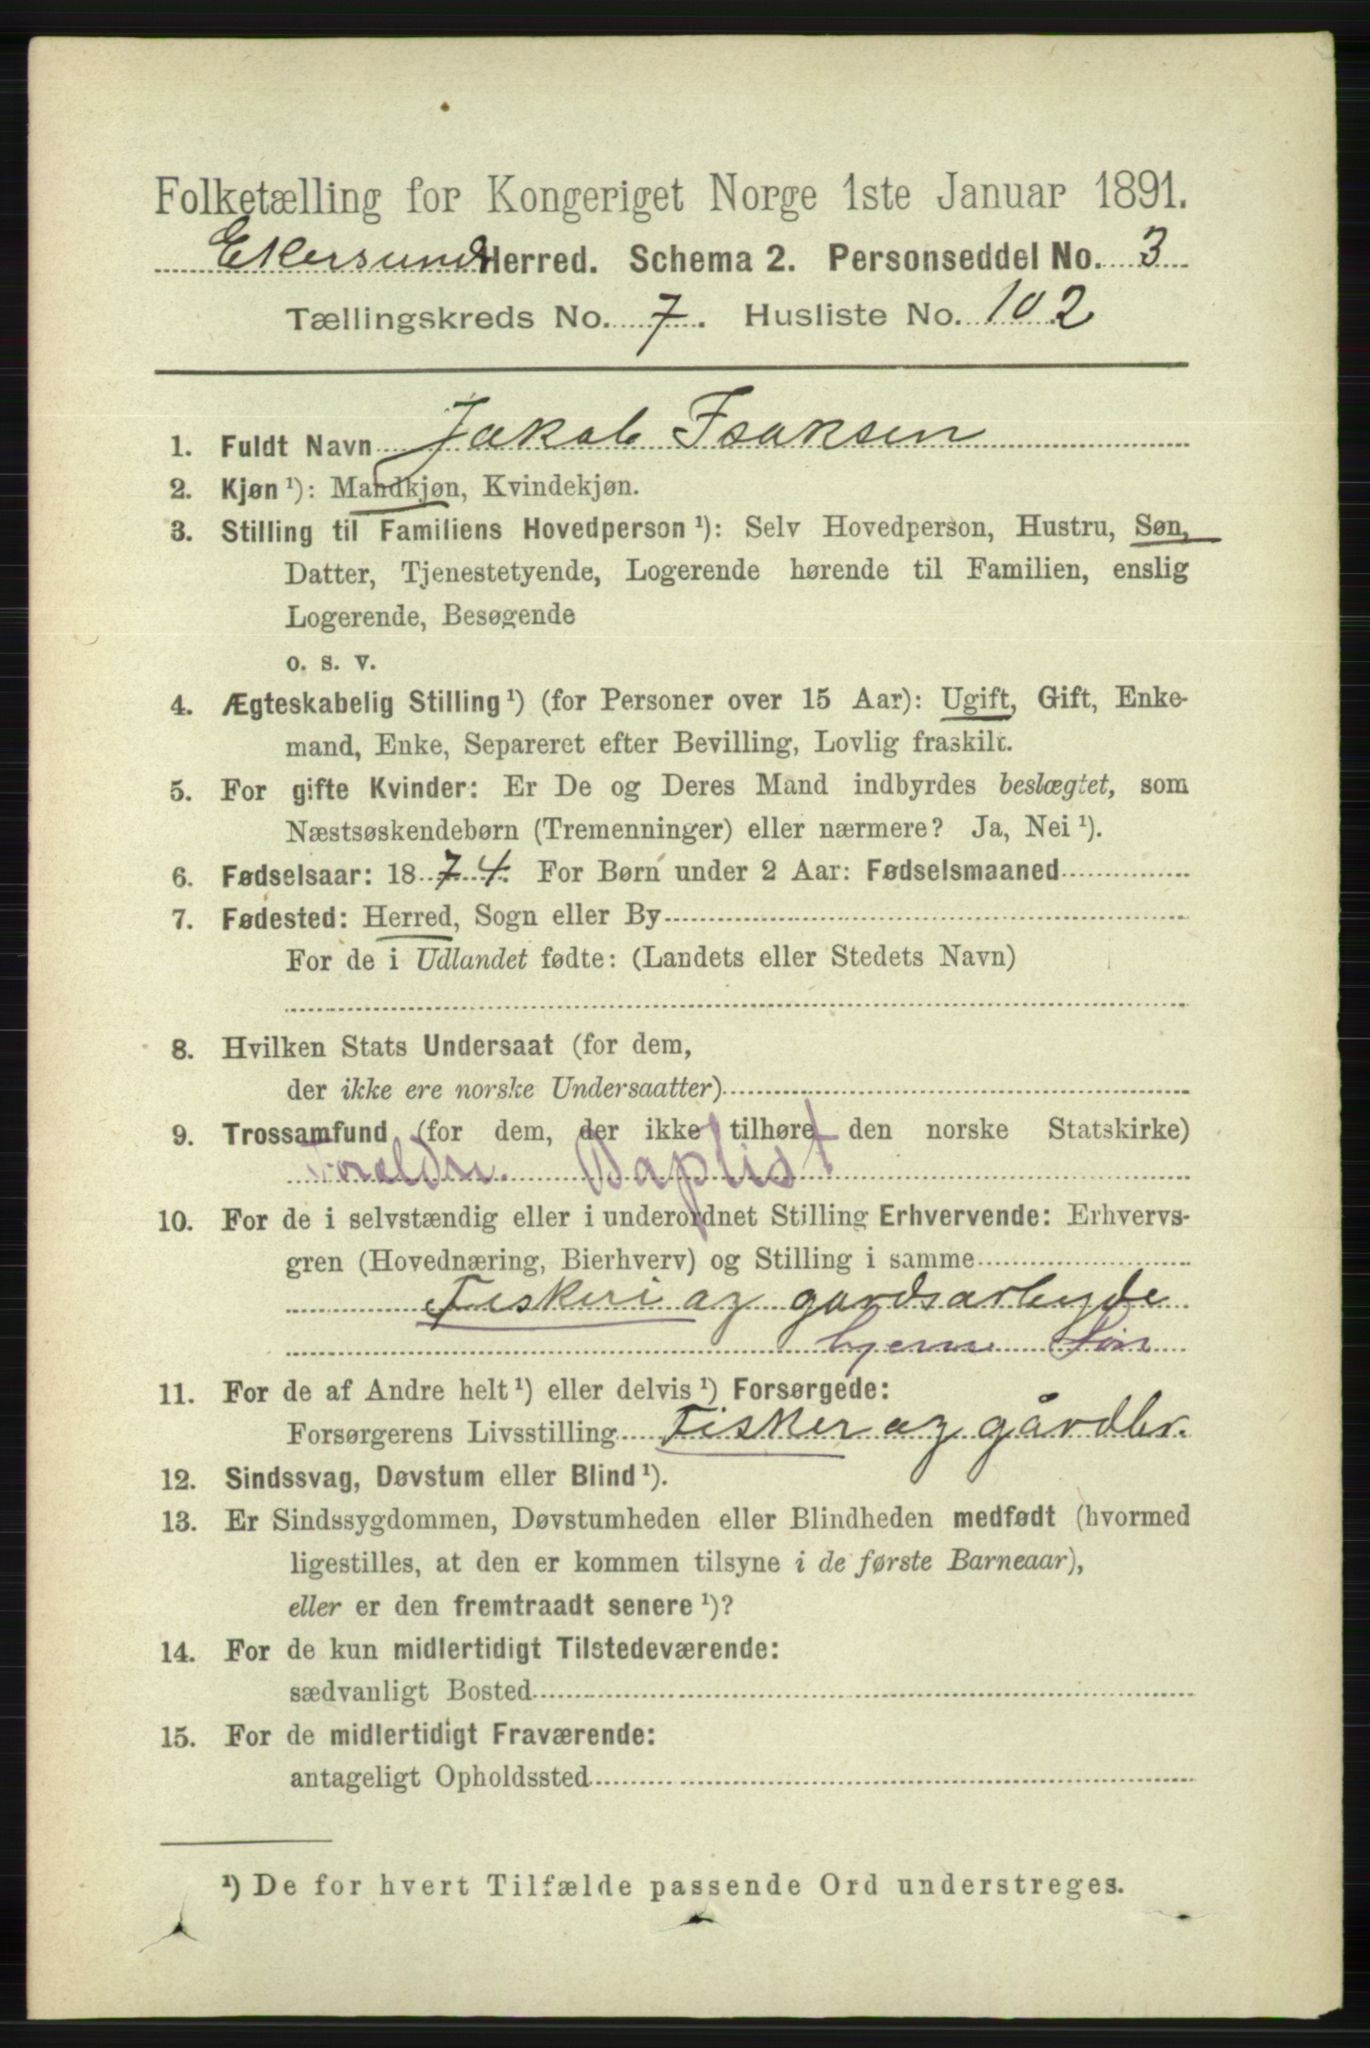 Folketælling for Kongeriget Norge 1ste Januar 1891.
Ekersund Herred. Schema 2. Personseddel No. 3
Tællingskreds No. 7. Husliste No. 102
1. Fuldt Navn Jakob Isaksen
2. Kjøn ¹): Mandkjøn, Kvindekjøn.
3. Stilling til Familiens Hovedperson ¹): Selv Hovedperson, Hustru, Søn,
Datter, Tjenestetyende, Logerende hørende til Familien, enslig
Logerende, Besøgende
o. s. v.
4. Ægteskabelig Stilling ¹) (for Personer over 15 Aar): Ugift, Gift, Enke-
mand, Enke, Separeret efter Bevilling, Lovlig fraskilt.
5. For gifte Kvinder: Er De og Deres Mand indbyrdes beslægtet, som
Næstsøskendebørn (Tremenninger) eller nærmere? Ja, Nei ¹).
6. Fødselsaar: 1874. For Børn under 2 Aar: Fødselsmaaned
7. Fødested: Herred, Sogn eller By
For de i Udlandet fødte: (Landets eller Stedets Navn)
8. Hvilken Stats Undersaat (for dem,
der ikke ere norske Undersaatter)
9. Trossamfund (for dem, der ikke tilhøre den norske Statskirke)
Forældre. Baptist
10. For de i selvstændig eller i underordnet Stilling Erhvervende: Erhvervs-
gren (Hovednæring, Bierhverv) og Stilling i samme
Fiskeri og gardsarbeyde
hjemme
11. For de af Andre helt ¹) eller delvis ¹) Forsørgede:
Forsørgerens Livsstilling Fisker og gårdbr.
12. Sindssvag, Døvstum eller Blind ¹).
13. Er Sindssygdommen, Døvstumheden eller Blindheden medfødt (hvormed
ligestilles, at den er kommen tilsyne i de første Barneaar),
eller er den fremtraadt senere ¹)?
14. For de kun midlertidigt Tilstedeværende:
sædvanligt Bosted
15. For de midlertidigt Fraværende:
antageligt Opholdssted
¹) De for hvert Tilfælde passende Ord understreges.